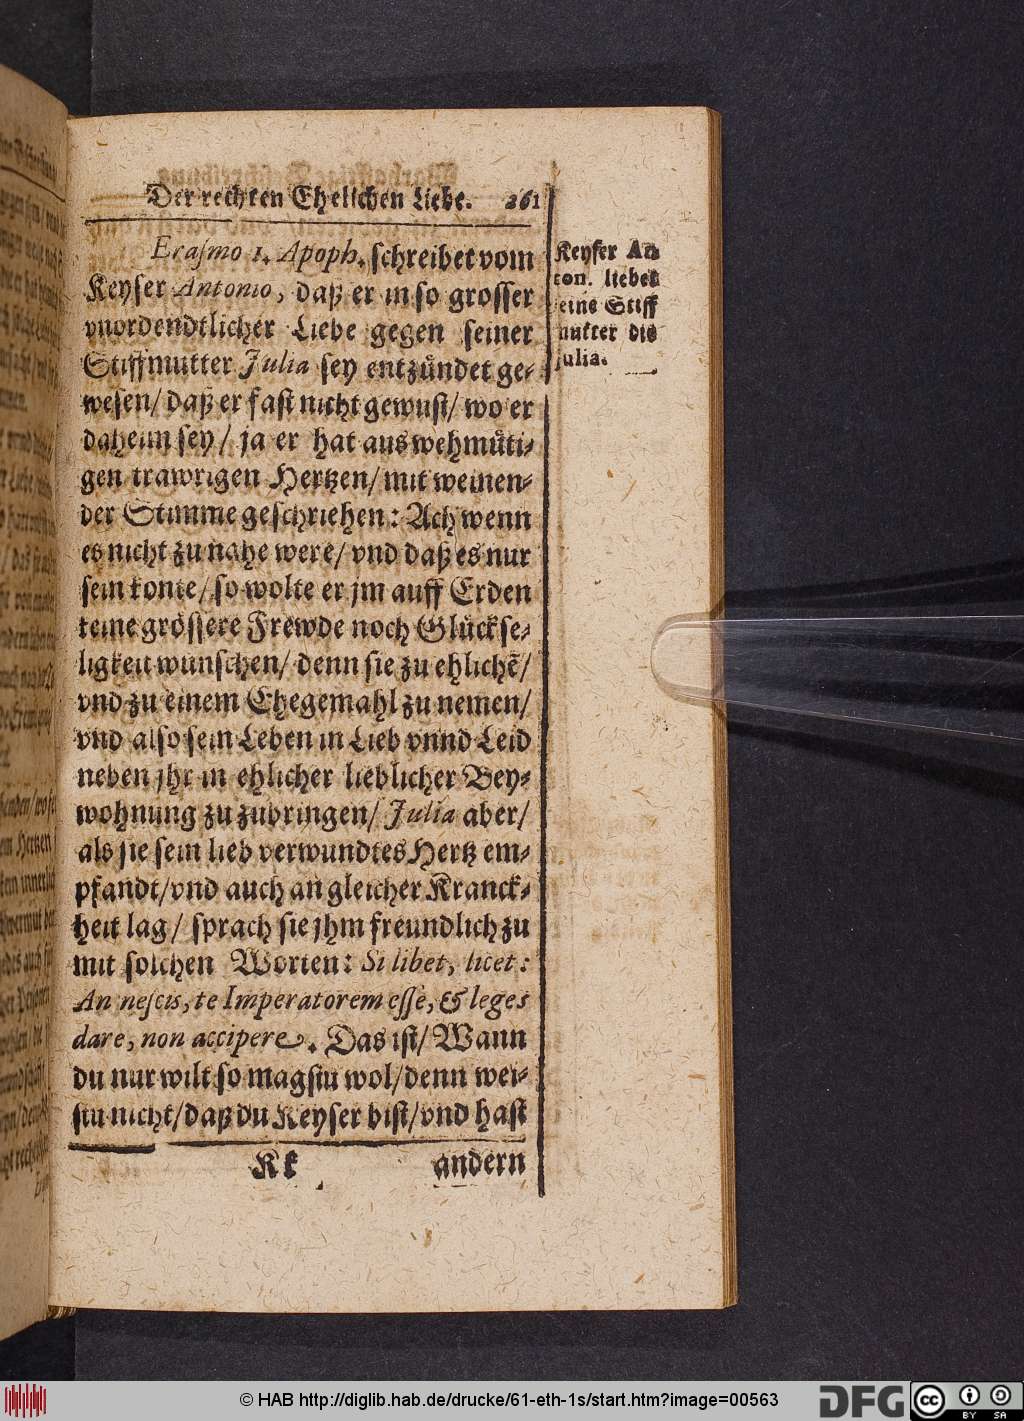 Der rechten Ehelichen Liebe. 261
Erasmo 1. Apoph. schreibet vom
Keyser Antonio, daß er in so grosser
vnordendtlicher Liebe gegen seiner
Stiffmutter Julia sey entzündet ge-
wesen/ daß er fast nicht gewust/ wo er
daheim sey/ ja er hat aus wehmüti-
gen trawrigen Hertzen/ mit weinen-
der Stimme geschriehen: Ach wenn
es nicht zu nahe were/ vnd daß es nur
sein konte/ so wolte er jm auff Erden
keine grössere Frewde noch Glückse-
ligkeit wünschen/ denn sie zu ehlichẽ/
vnd zu einem Ehegemahl zu nemen/
vnd also sein Leben in Lieb vnnd Leid
neben jhr in ehlicher lieblicher Bey-
wohnung zu zubringen/ Julia aber/
als sie sein lieb verwundtes Hertz em-
pfandt/ vnd auch an gleicher Kranck-
heit lag/ sprach sie jhm freundlich zu
mit solchen Worten: Si libet, licet:
An nescis, te Imperatorem esse, & leges
dare, non accipere. Das ist/ Wann
du nur wilt so magstu wol/ denn wei-
stu nicht/ daß du Keyser bist/ vnd hast
Kk andern
Keyser An
ton. liebet
eine Stiff
mutter die
Julia.
© HAB http://diglib.hab.de/drucke/61-eth-1s/start.htm?image=00563
DFG
cc BY SA